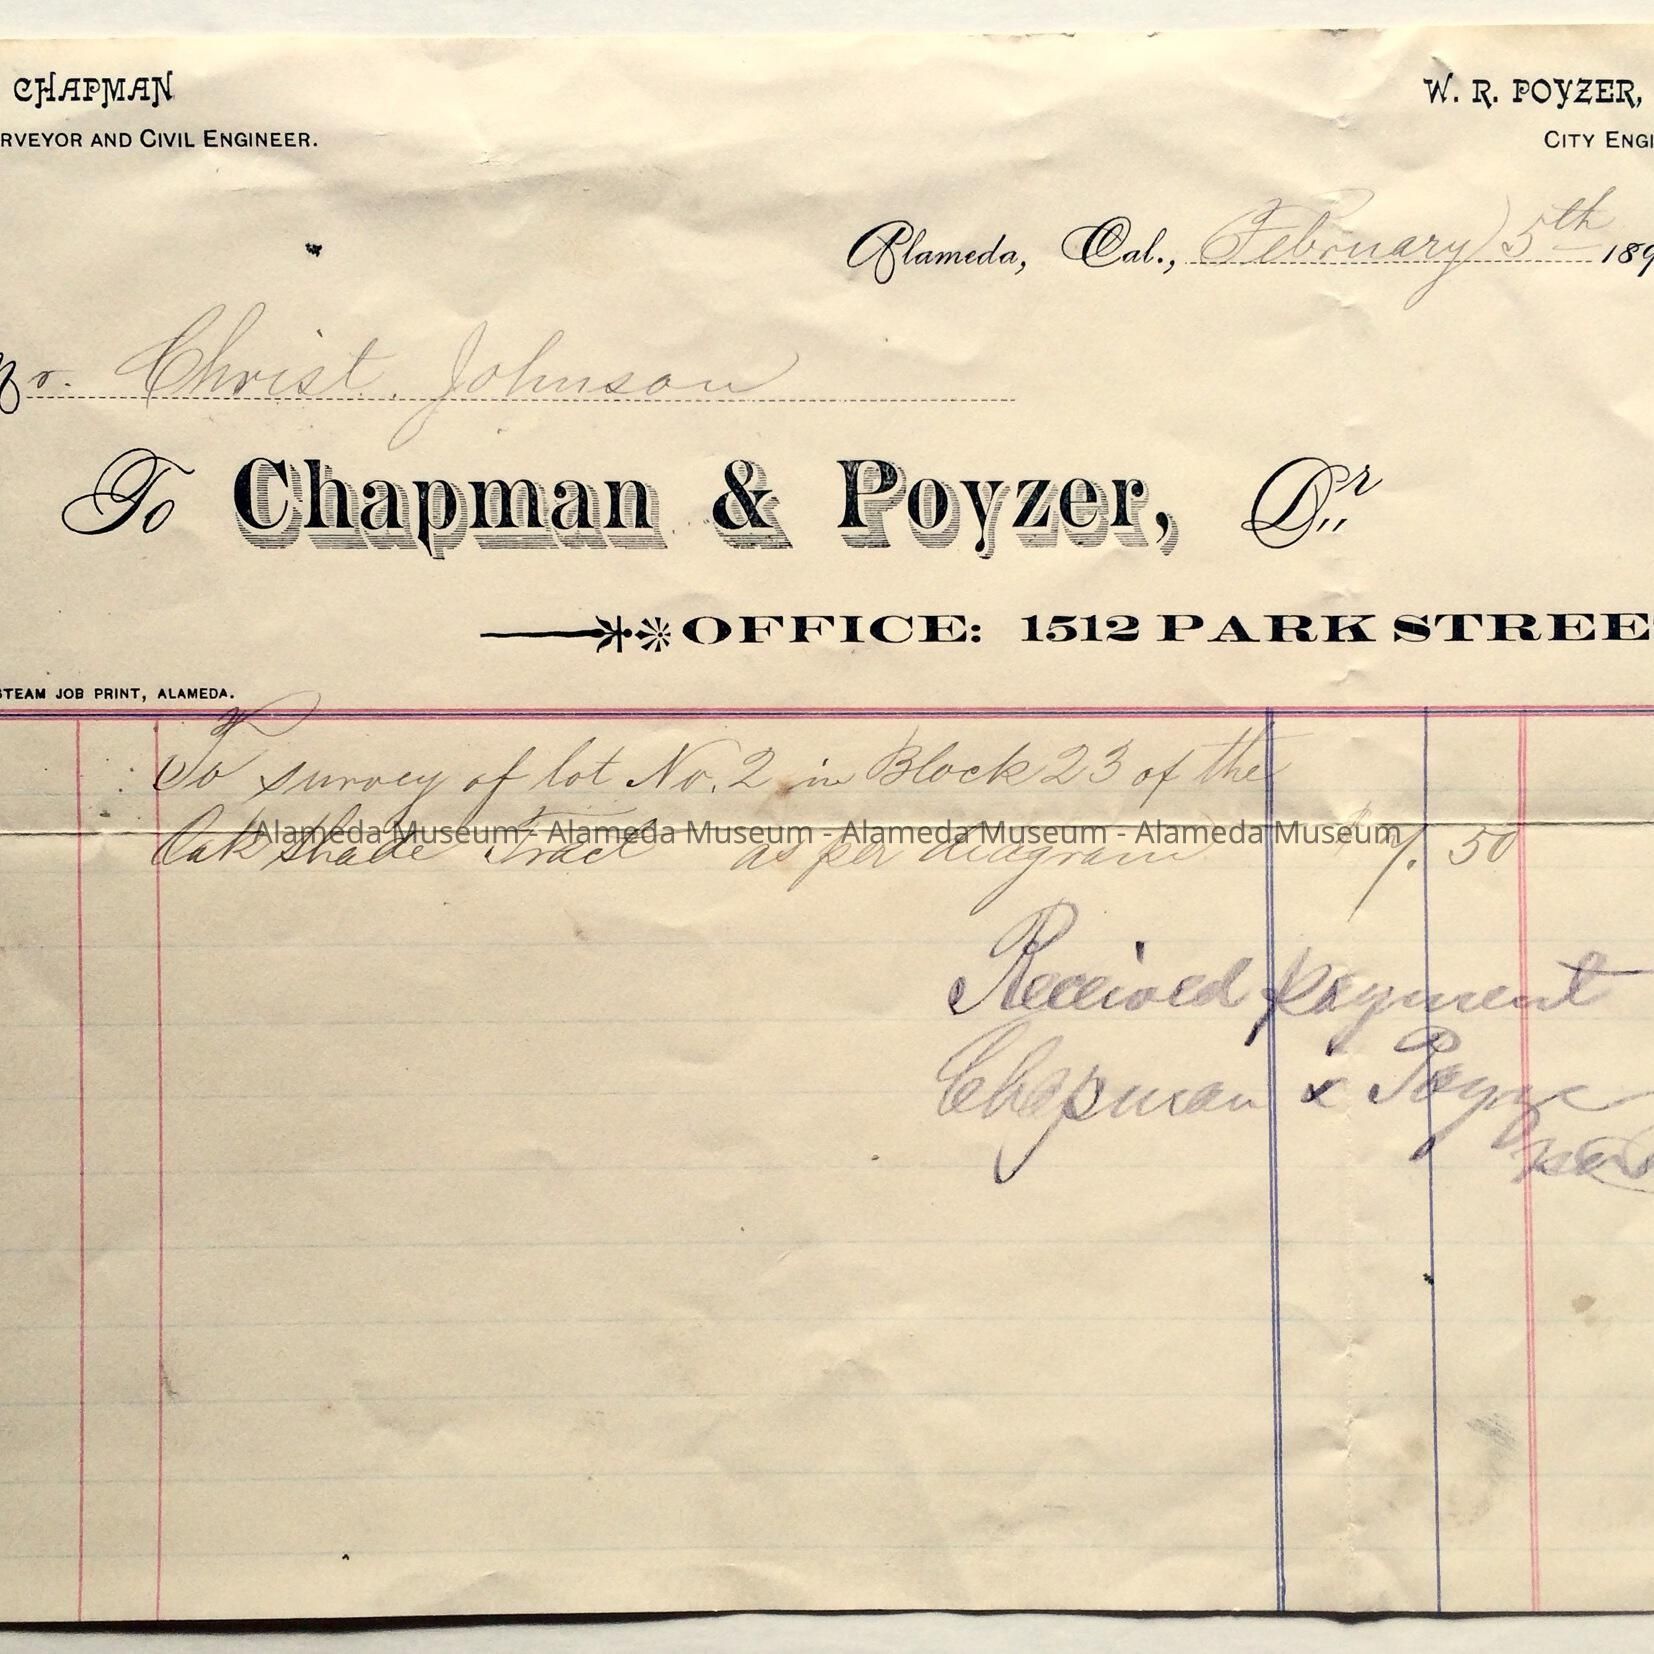 CHAPMAN
RVEYOR AND CIVIL ENGINEER.
W. R. POYZER,
CITY ENGI
Alameda, Cal., February 5th 189
Mr. Christ. Johnson
To Chapman & Poyzer, Dr
OFFICE: 1512 PARK STREE
STEAM JOB PRINT, ALAMEDA.
To survey of lot No. 2 in Block 23 of the
Oak Shade Tract as per diagram 7. 50
Alameda Museum - Alameda Museum - Alameda Museum - Alameda Museum
Received payment
Chapman & Poyze